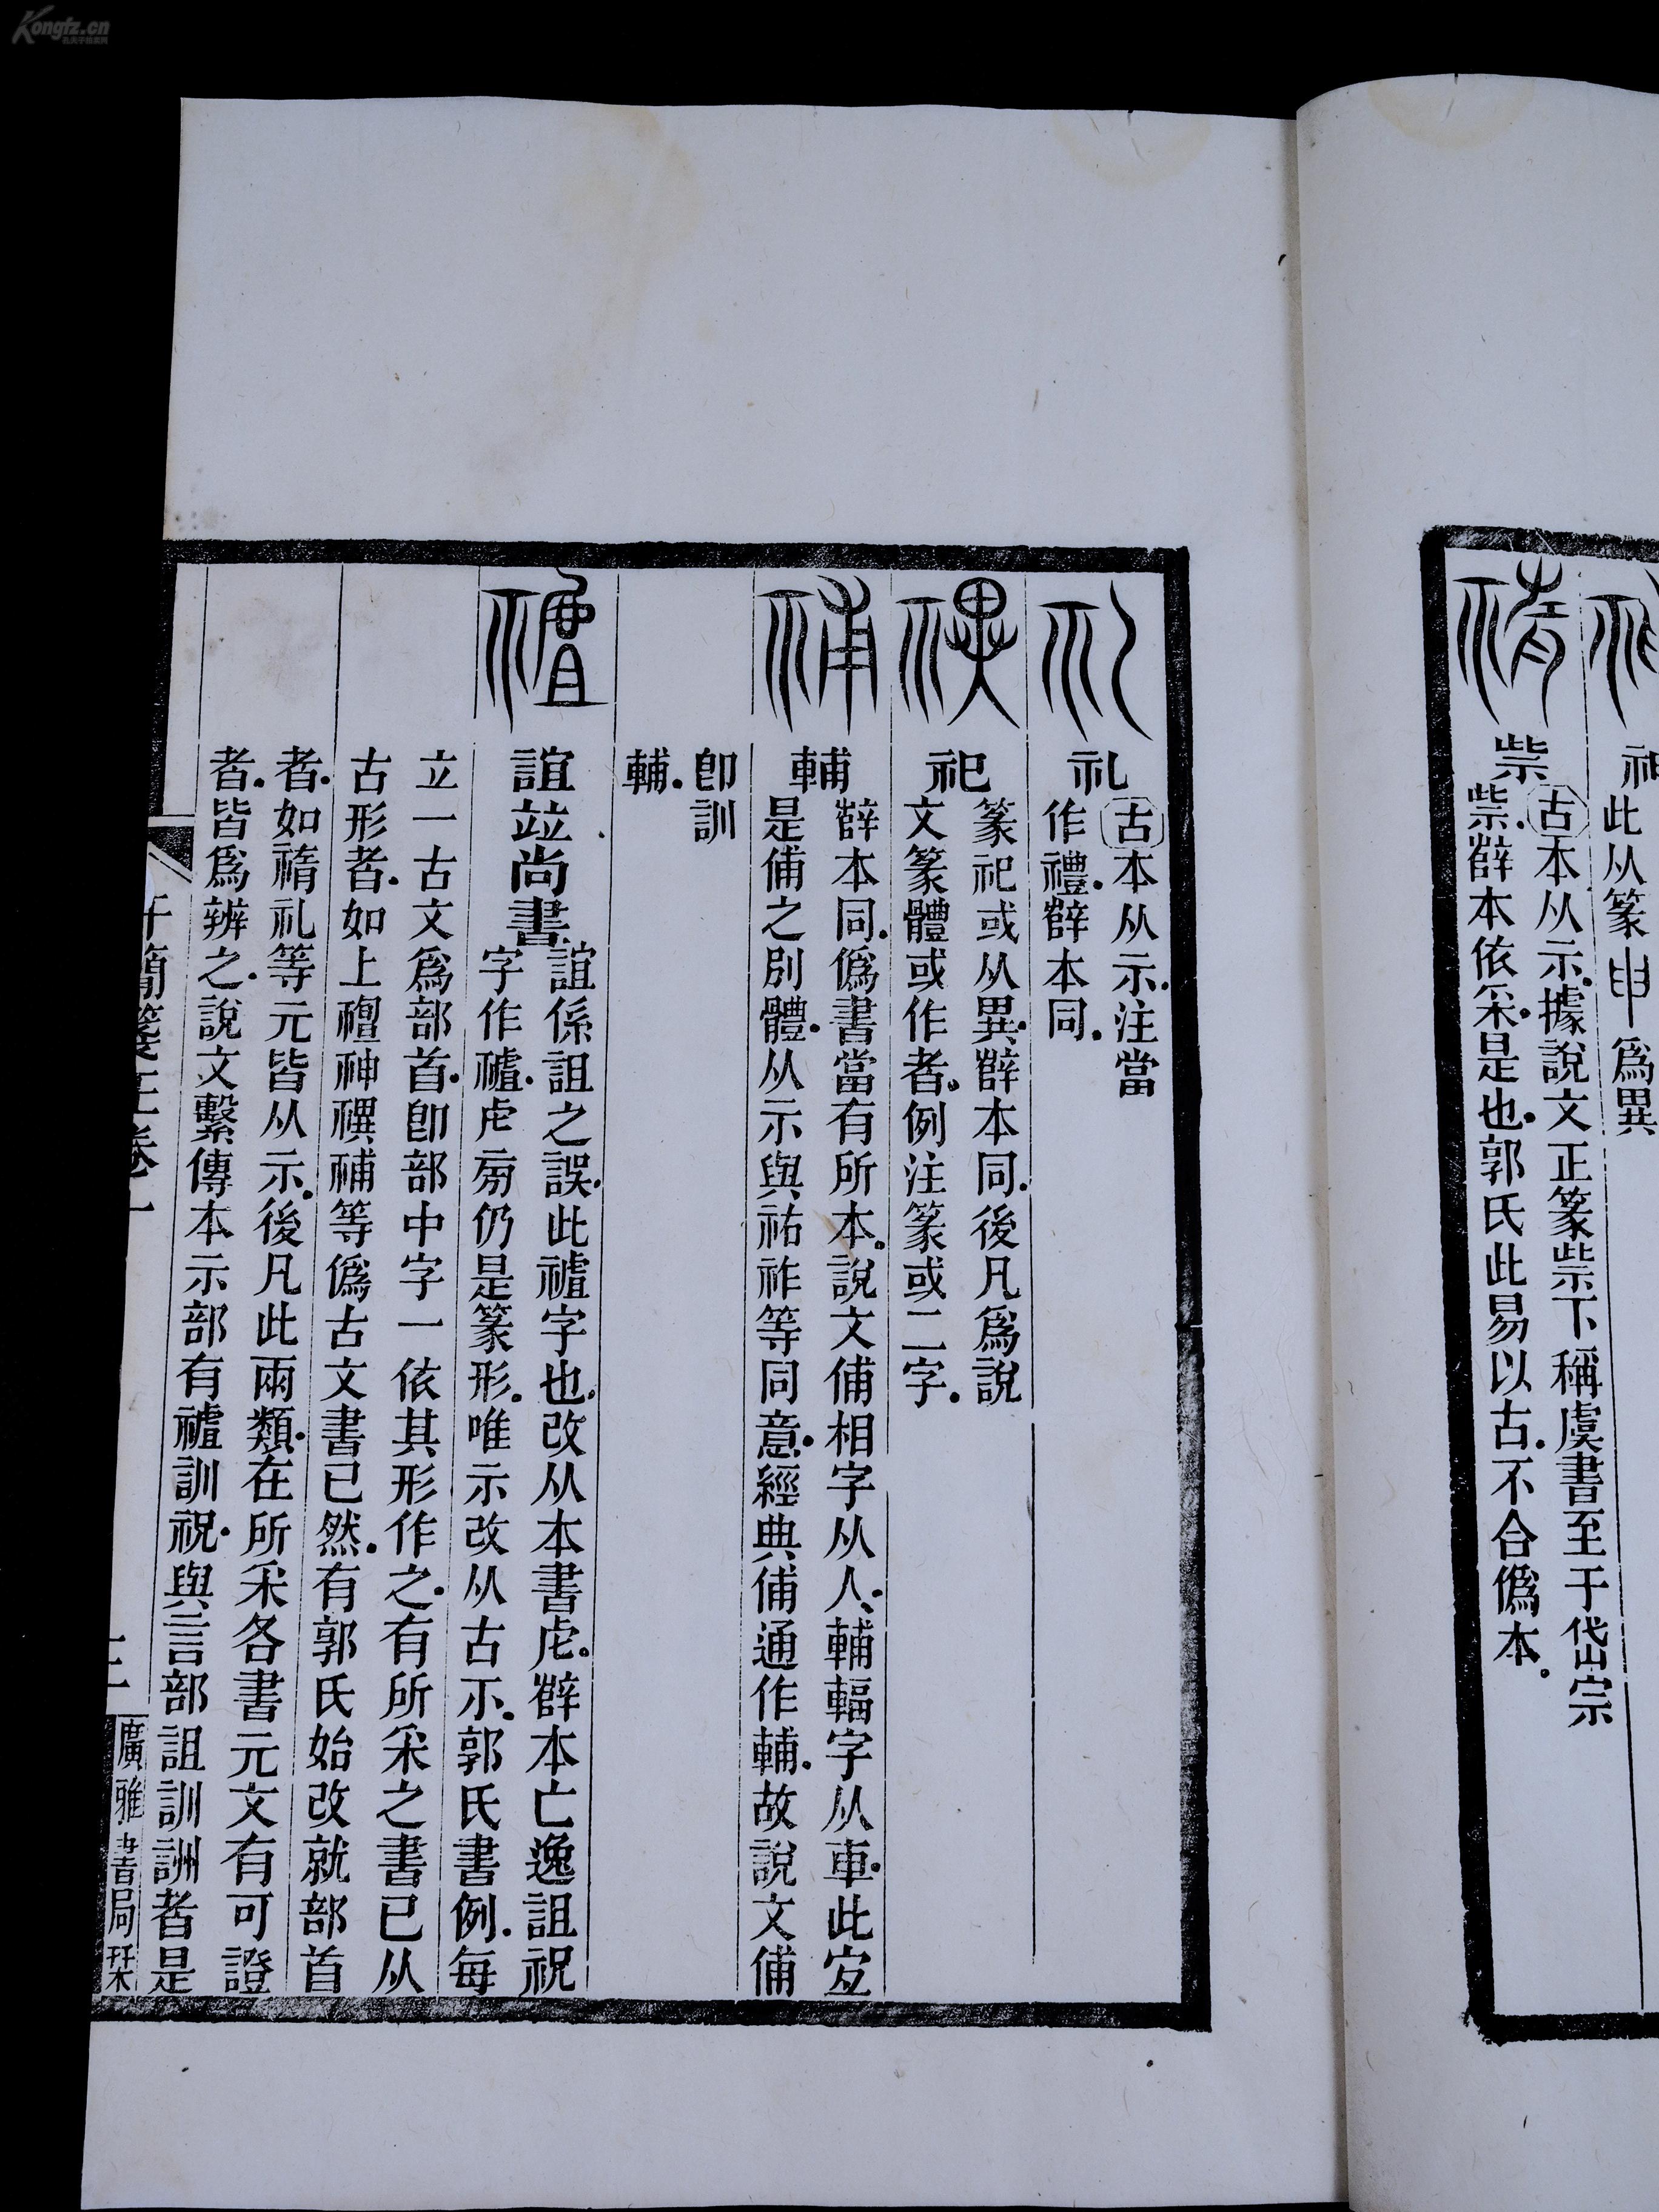 Kongfz.cn
此从篆申爲異
祡
古本从示據說文正篆祡下稱虞書至于岱宗
祡薛本依采是也郭氏此易以古不合僞本
礼
古本从示注當
作禮薛本同
祀
篆祀或从異薛本同後凡爲說
文篆體或作者例注篆或二字
輔
薛本同僞書當有所本說文俌相字从人輔輻字从車此宐
是俌之別體从示與祐祚等同意經典俌通作輔故說文俌
卽訓
輔
誼竝尚書
誼係詛之誤此䄏字也改从本書虘薛本亡逸詛祝
字作䄏虍㫄仍是篆形唯示改从古示郭氏書例每
立一古文爲部首卽部中字一依其形作之有所采之書已从
古形者如上禋神禩補等僞古文書已然有郭氏始改就部首
者如禙礼等元皆从示後凡此兩類在所采各書元文有可證
者皆爲辨之說文繫傳本示部有䄏訓祝與言部詛訓詶者是
汗簡箋正卷一
廣雅書局栞